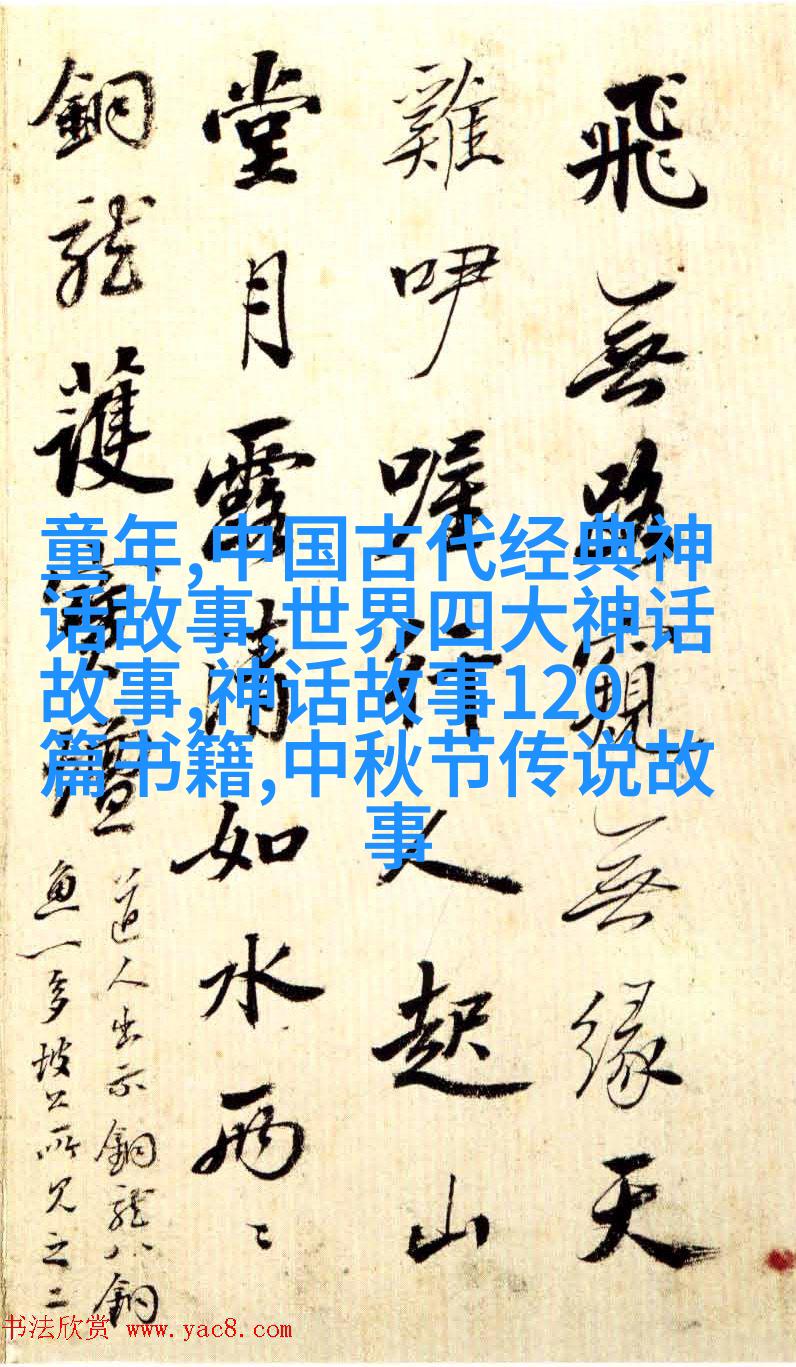 飛無路窺無緣天
雞咿喔行人起山
堂月露清如水兩〻
銅龍護壇
道人出示銅龍八銅
魚一坡公所見之二
童年,中国古代经典神
话故事,世界四大神话
故事,神话故事120
篇书籍,中秋节传说故
事
书法欣赏 www.yac8.com